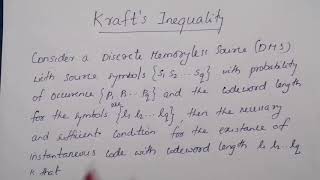 Kraft's Inequality
Consider a Discrete Memoryless Source (DMS)
with source symbols {S1 S2 ... Sq} with probability
of occurence {P1 P2 ... Pq} and the codeword length
for the symbols {l1 l2 ... lq} are, then the necessary
and sufficient condition for the existance of
instantaneous code with codeword length l1 l2 .. lq
is that